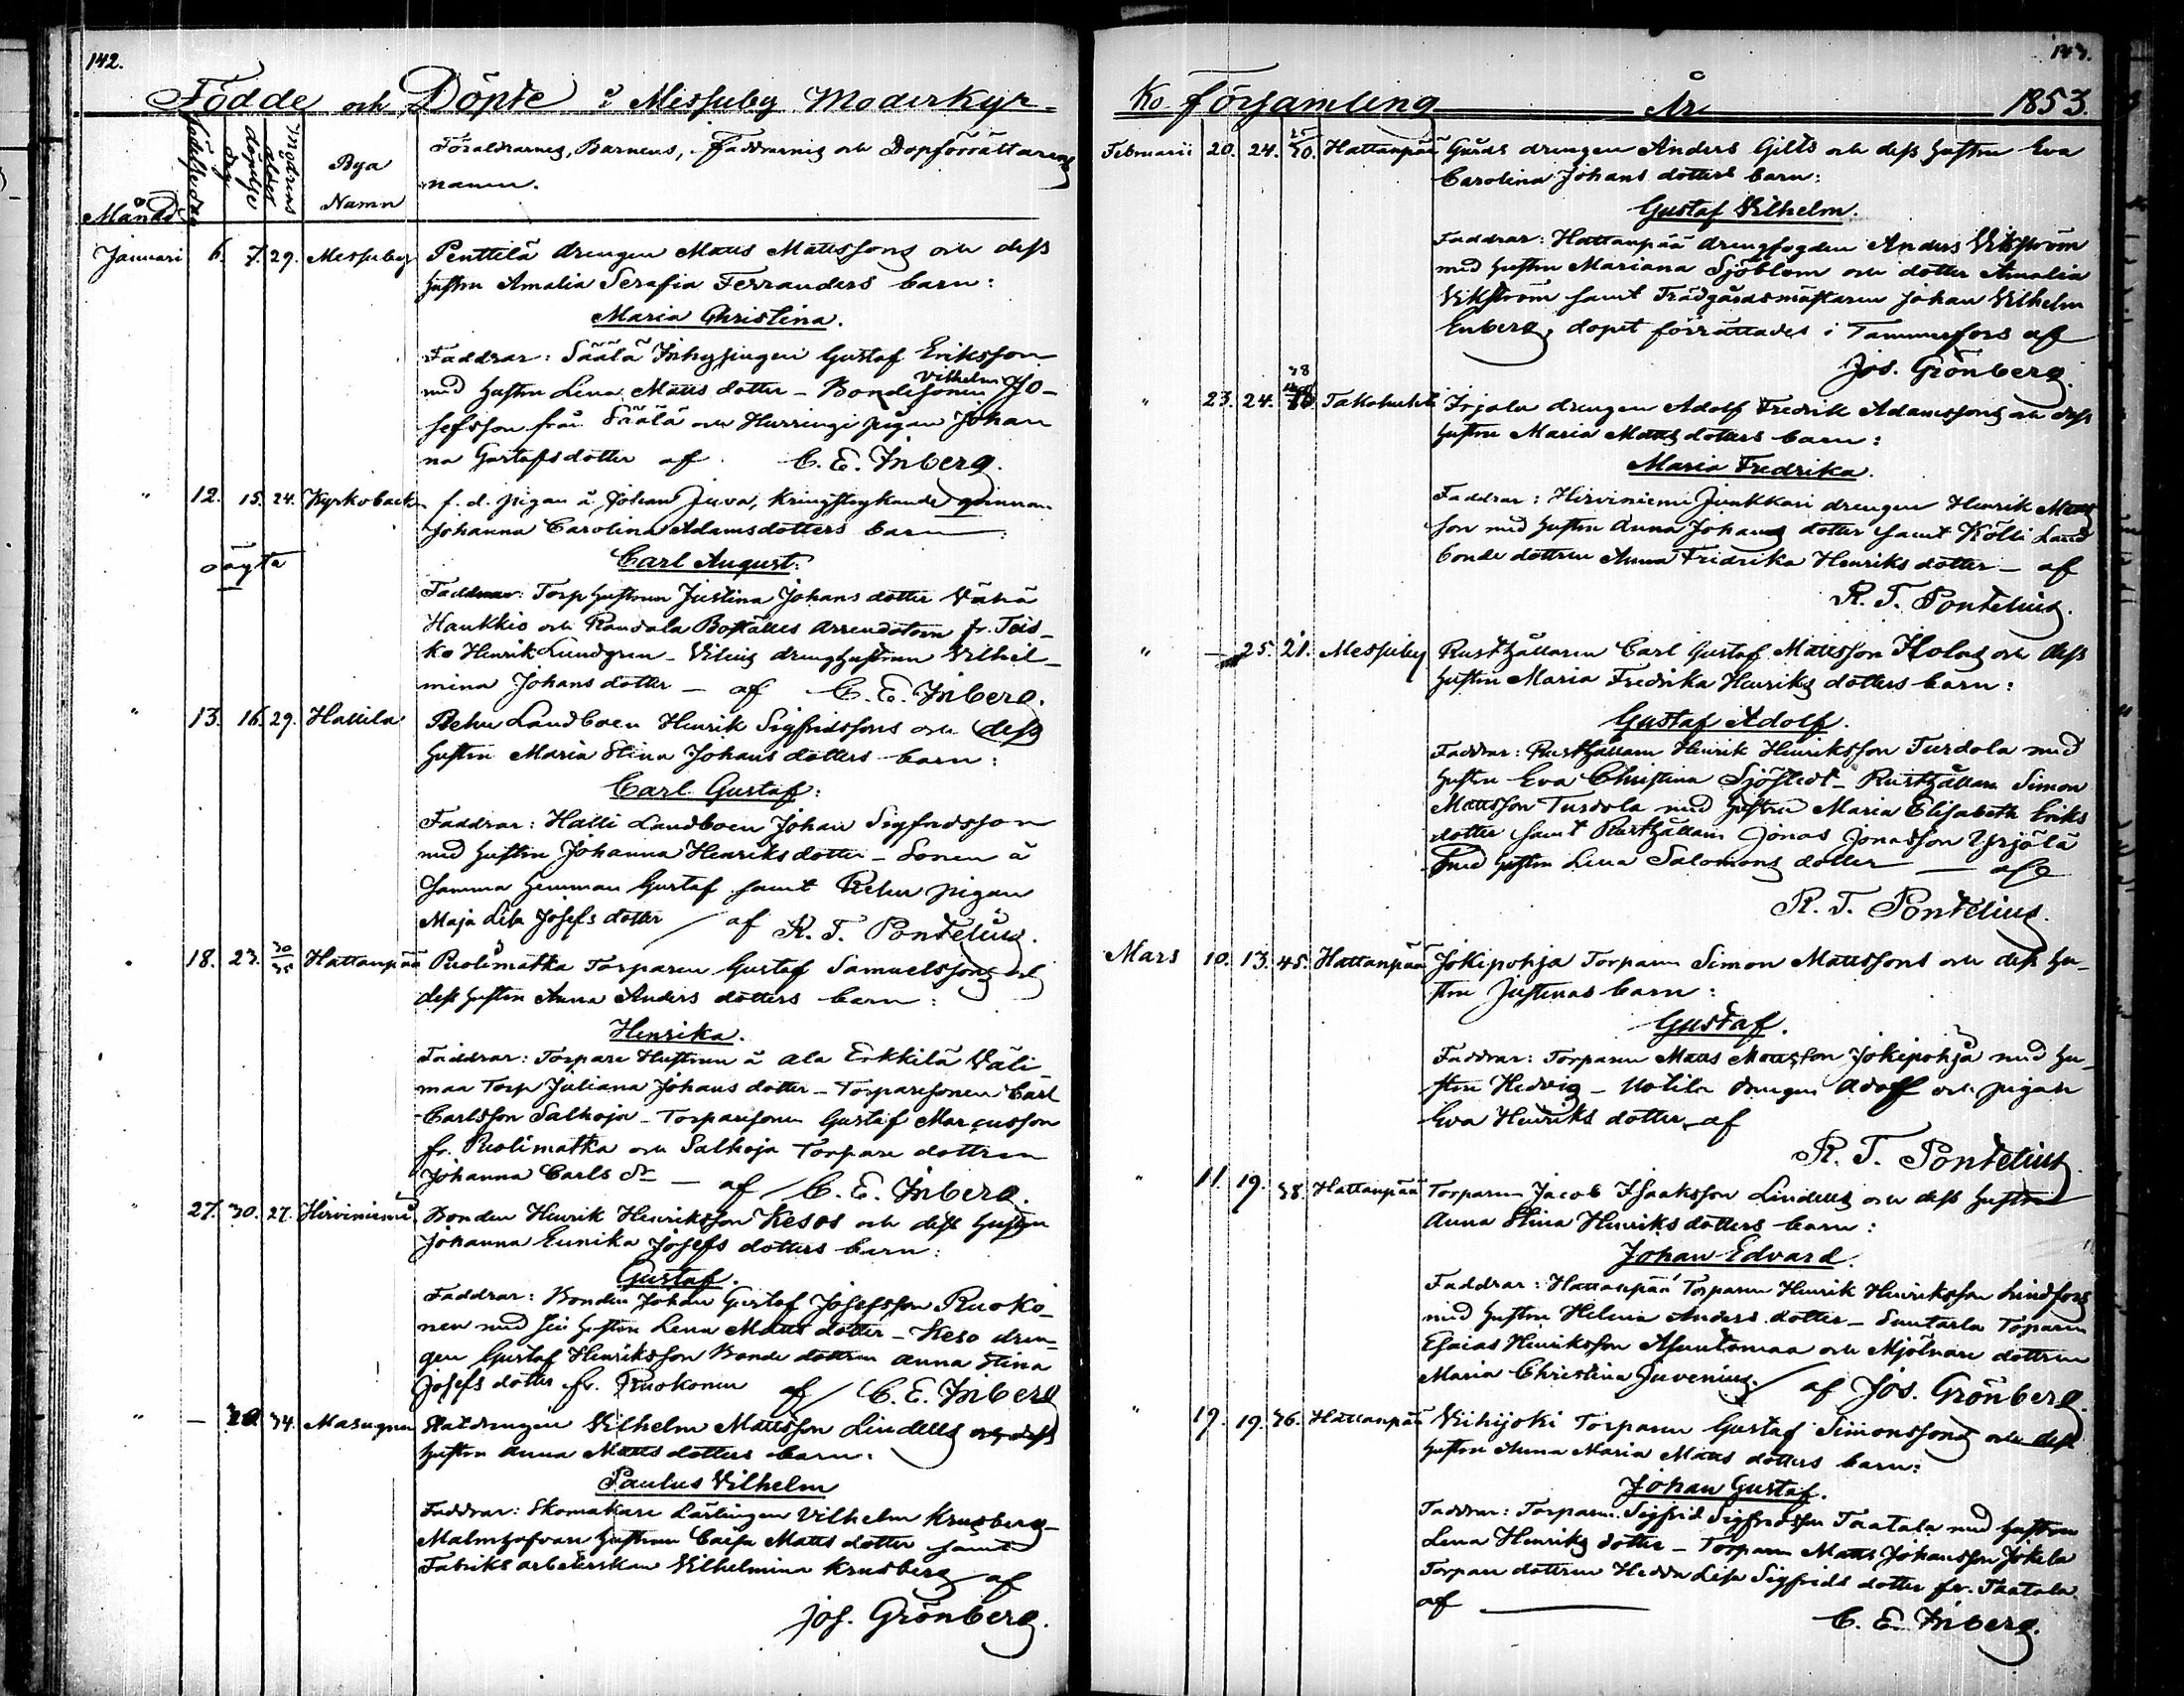 142.
Födde och Döpte i Messuby Moderkyr=
Månad
födelsedag
döpelse dag
Modrens ålder
Bya Namn
Föräldrarnes, Barnens, Faddrarnes och Dopförrättarens
namn.
Januari 6. 7. 29. Messuby Penttilä drengen Matts Mattssons och dess
hustru Amalia Serafia Ferranders barn:
Maria Christina.
Faddrar: Säälä Inhysingen Gustaf Eriksson
med hustru Lena Matts dotter – Bondesonen Vilhelm Jo-
sefsson från Säälä och Hurringi pigan Johan
na Gustafsdotter af C. E. Inberg.
" 12. 15. 24. Kyrkobacka f. d. pigan å Johan Juva, kringstrykande qvinnan
Johanna Carolina Adamsdotters barn
oägta
Carl August.
Faddrar: Torp hustrun Justina Johans dotter Vähä
Haukkio och Randala Boställes Arrendatorn fr. Teis-
ko Henrik Lundgren – drenghustrun Vilhel-
mina Johans dotter – af C. E. Inberg.
" 13. 16. 29. Hallila Rehu Landboen Henrik Sigfridssons och dess
hustru Maria Stina Johans dotters barn:
Carl Gustaf:
Faddrar: Halli Landboen Johan Sigfridsson
med hustru Johanna Henriks dotter – Sonen å
samma hemman Gustaf samt Rehu pigan
Maja Lisa Josefs dotter af R. T. Pontelius.
" 18. 23. 30/35 Hattanpää Puolimatka Torparen Gustaf Samuelssons och
dess hustru Anna Anders dotters barn:
Henrika.
Faddrar: Torpare Hustrun å Ala Erkkilä Väli
maa Torp Juliana Johans dotter – Torparesonen Carl
Carlsson Salhoja – Torparesonen Gustaf Marcusson
fr. Puolimatka och Salhoja Torpare dottren
Johanna Carls dr – af C. E. Inberg.
" 27. 30. 27. Hirviniemi Bonden Henrik Henriksson Kesos och dess hustru
Johanna Eunika Josefs dotters barn:
Gustaf.
Faddrar: Bonden Johan Gustaf Josefsson Ruoko-
nen med sin hustru Lena Matts dotter – Keso dren-
gen Gustaf Henriksson Bonde dottren Anna Stina
Josefs dotter fr. Ruokonen af C. E. Inberg
" – 30. 34. Masugnen Statdrengen Vilhelm Mattsson Lindells och dess
hustru Anna Matts dotters barn.
Paulus Vilhelm
Faddrar: Skomakare Lärlingen Vilhelm Krusberg –
hustrun Caisa Matts dotter samt
Fabriks arbeterskan Vilhelmina Krusberg af
Jos. Grönberg.
143.
Ko Församling År 1853.
Februarii 20. 24. 25/30. Hattanpää Gårds drengen Anders Gilts och dess hustru Eva
Carolina Johans dotters barn:
Gustaf Vilhelm.
Faddrar: Hattanpää drengfogden Anders Vikström
med hustru Mariana Sjöblom och dotter Amalia
Vikström samt Trädgårdsmästaren Johan Vilhelm
Enberg, dopet förrättades i Tammerfors af
Jos. Grönberg.
" 23. 24. 38 Takahuhti Irjala drengen Adolf Fredrik Adamssons och dess
hustru Maria Matts dotters barn:
Maria Fredrika.
Faddrar: Hirviniemi Junkkari drengen Henrik Matts
son med hustru Anna Johans dotter samt Kölli Land
bonde dottren Anna Fredrika Henriks dotter – af
R. T. Pontelius.
" – 25. 21. Messuby Rusthållaren Carl Gustaf Mattsson Holas och dess
hustru Maria Fredrika Henriks dotters barn:
Gustaf Adolf.
Faddrar: Rusthållaren Henrik Henriksson Turdola med
hustru Eva Christina Sjöstedt – Rusthållaren Simon
Mattsson Turdola med hustru Maria Elisabeth Eriks
dotter samt Rusthållaren Jonas Jonasson Yrjölä
med hustru Lena Salomons dotter – af
R. T. Pontelius.
Mars 10. 13. 45. Hattanpää Jokipohja Torparen Simon Mattssons och dess hu-
stru Justinas barn:
Gustaf.
Faddrar: Torparen Matts Mattsson Jokipohja med hu-
stru Hedvig – Uotila drengen Adolf och pigan
Eva Henriks dotter af
R. T. Pontelius.
" 11. 19. 38. Hattanpää Torparen Jacob Isaaksson Lindells och dess hustru
Anna Stina Henriks dotters barn:
Johan Edvard.
Faddrar: Hattanpää Torparen Henrik Henriksson Lindfors
med hustru Helena Anders dotter – Suutarla Torparen
Esaias Henriksson Asuntomaa och Mjölnare dottren
Maria Christina Juvenius. af Jos. Grönberg.
" 19. 19. 36. Hattanpää Viikijoki Torparen Gustaf Simonssons och dess
hustru Anna Maria Matts dotters barn:
Johan Gustaf.
Faddrar: Torparen Sigfrid Sigfridsson Taatala med hustru
Lena Henriks dotter – Torparen Matts Johansson Jokela
Torpare dottren Hedda Lisa Sigfrids dotter fr. Taatala.
af
C. E. Inberg.